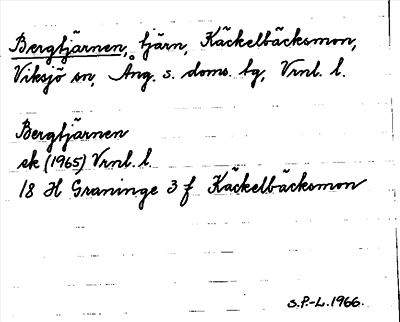 Bergtjärnen, tjärn, Käckelbäcksmon,
Viksjö sn, Ång. s. doms. bg, Vrnl. l.
Bergtjärnen
ek (1965) Vrnl. l.
18 H Graninge 3 f Käckelbäcksmon
S.P.-L. 1966.